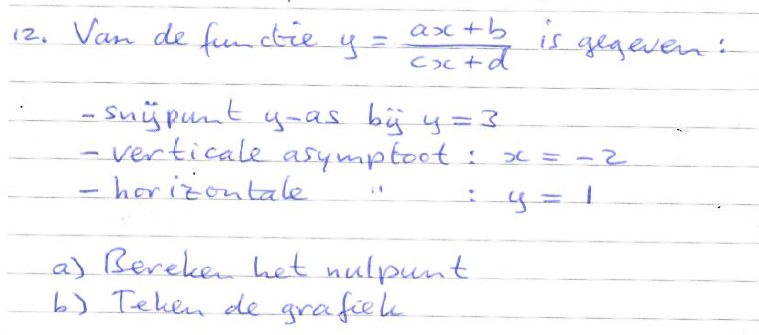 12. Van de functie y = ax+b / cx+d is gegeven:
- snijpunt y-as bij y = 3
- verticale asymptoot : x = -2
- horizontale " : y = 1
a) Bereken het nulpunt
b) Teken de grafiek